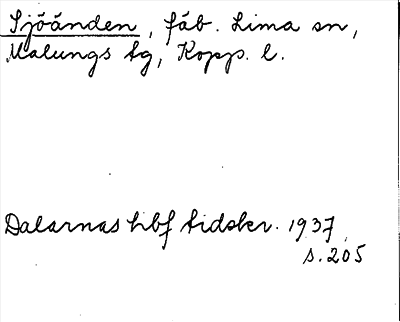 Sjöänden, fäb. Lima sn,
Malungs tg, Kopp. l.
Dalarnas hbf tidskr. 1937,
s. 205